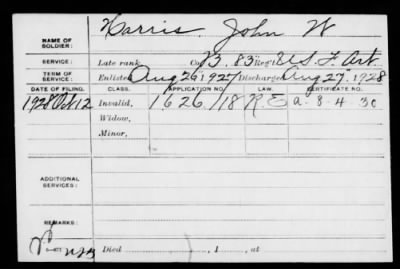 Harris, John W
NAME OF SOLDIER:
SERVICE: Late rank Co. B, 83 Reg't U.S.F. Art.
TERM OF SERVICE: Enlisted Aug 26 1927 Discharged Aug 27, 1928
DATE OF FILING. CLASS. APPLICATION NO. LAW. CERTIFICATE NO.
1928 Oct 12 Invalid, 1626118 R.E a-8-4-30
Widow,
Minor,
ADDITIONAL SERVICES:
REMARKS:
Died , 1 , at